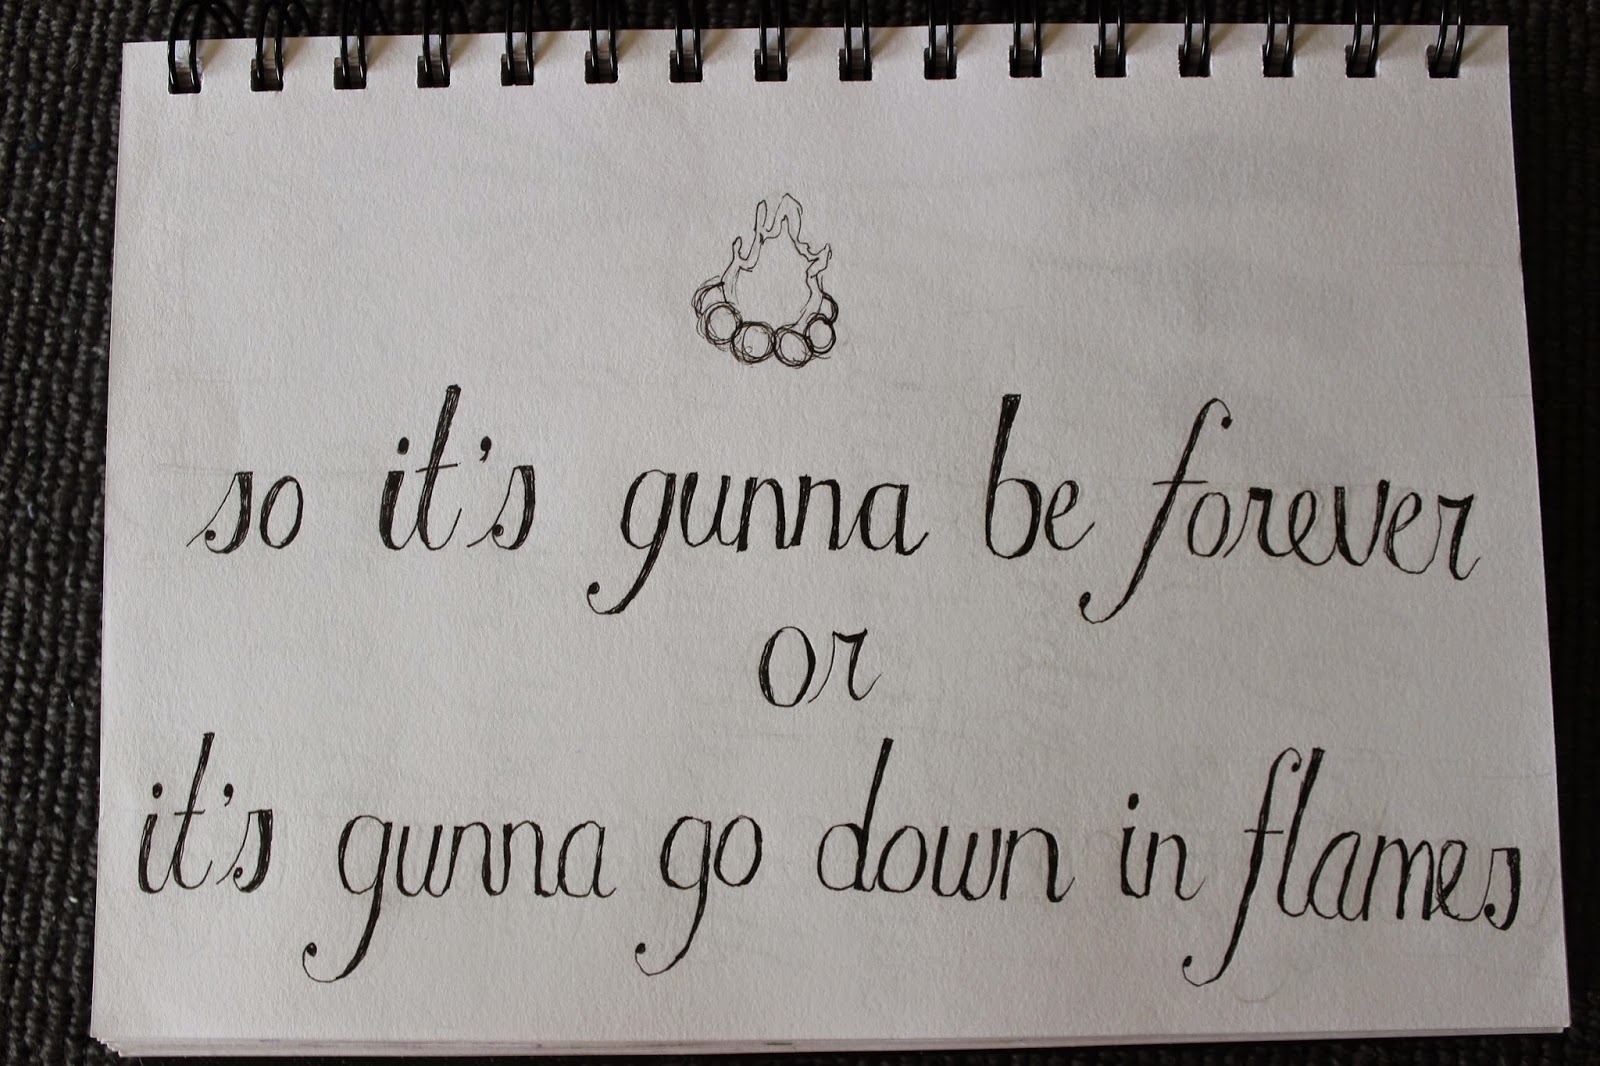 so it's gunna be forever
or
it's gunna go down in flames